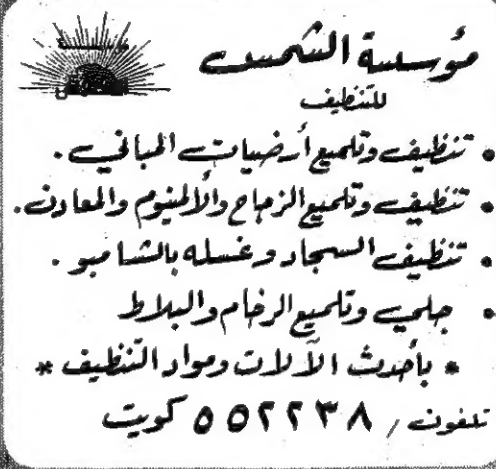 مؤسسة الشمس
للتنظيف
• تنظيف وتلميع أرضيات المباني.
• تنظيف وتلميع الزجاج والألمنيوم والمعادن.
• تنظيف السجاد وغسله بالشامبو.
• جلي وتلميع الرخام والبلاط
* بأحدث الآلات ومواد التنظيف *
تلفون / ٥٥٢٢٣٨ كويت